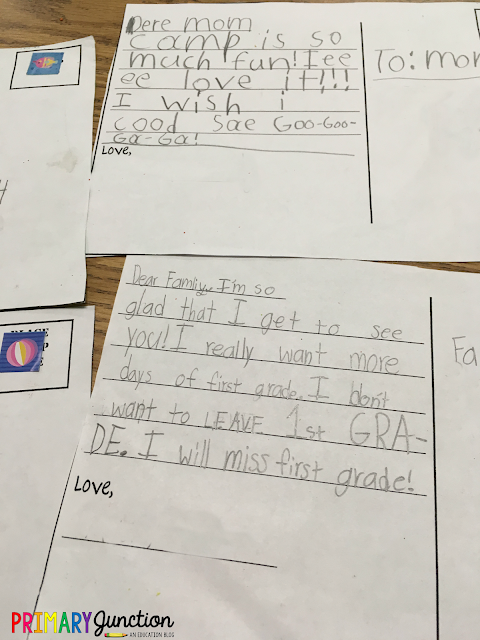 Dere mom
camp is so
much fun! Iee
ee love it!!!
I wish i
cood sae Goo-Goo-
Ga-Ga!
Love,
To: mom
Dear Famliy, I'm so
glad that I get to see
you! I really want more
days of first grade. I don't
want to LEAVE 1st GRA-
DE. I will miss first grade!
Love,
Fa
PRIMARY Junction
AN EDUCATION BLOG